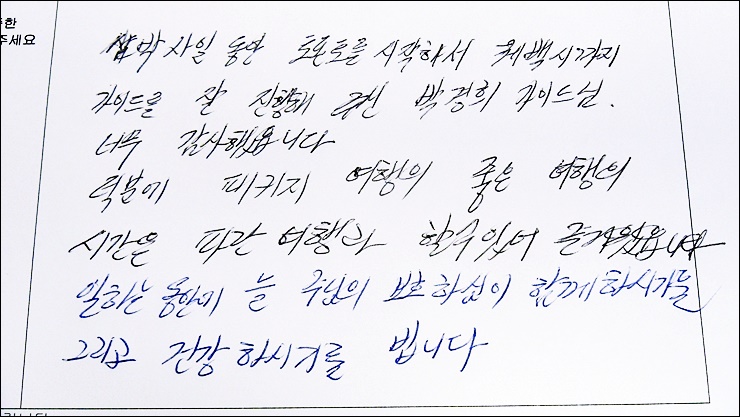 한
주세요
삼박 사일 동안 토론토를 시작해서 퀘백시까지
가이드를 잘 진행해 주신 박경희 가이드님.
너무 감사했읍니다
덕분에 패키지 여행의 좋은 여행의
시간은 파란 여행과 할수있어 즐거웠읍니다
일하는 동안에 늘 주님의 보호하심이 함께하시기를
그리고 건강하시기를 빕니다